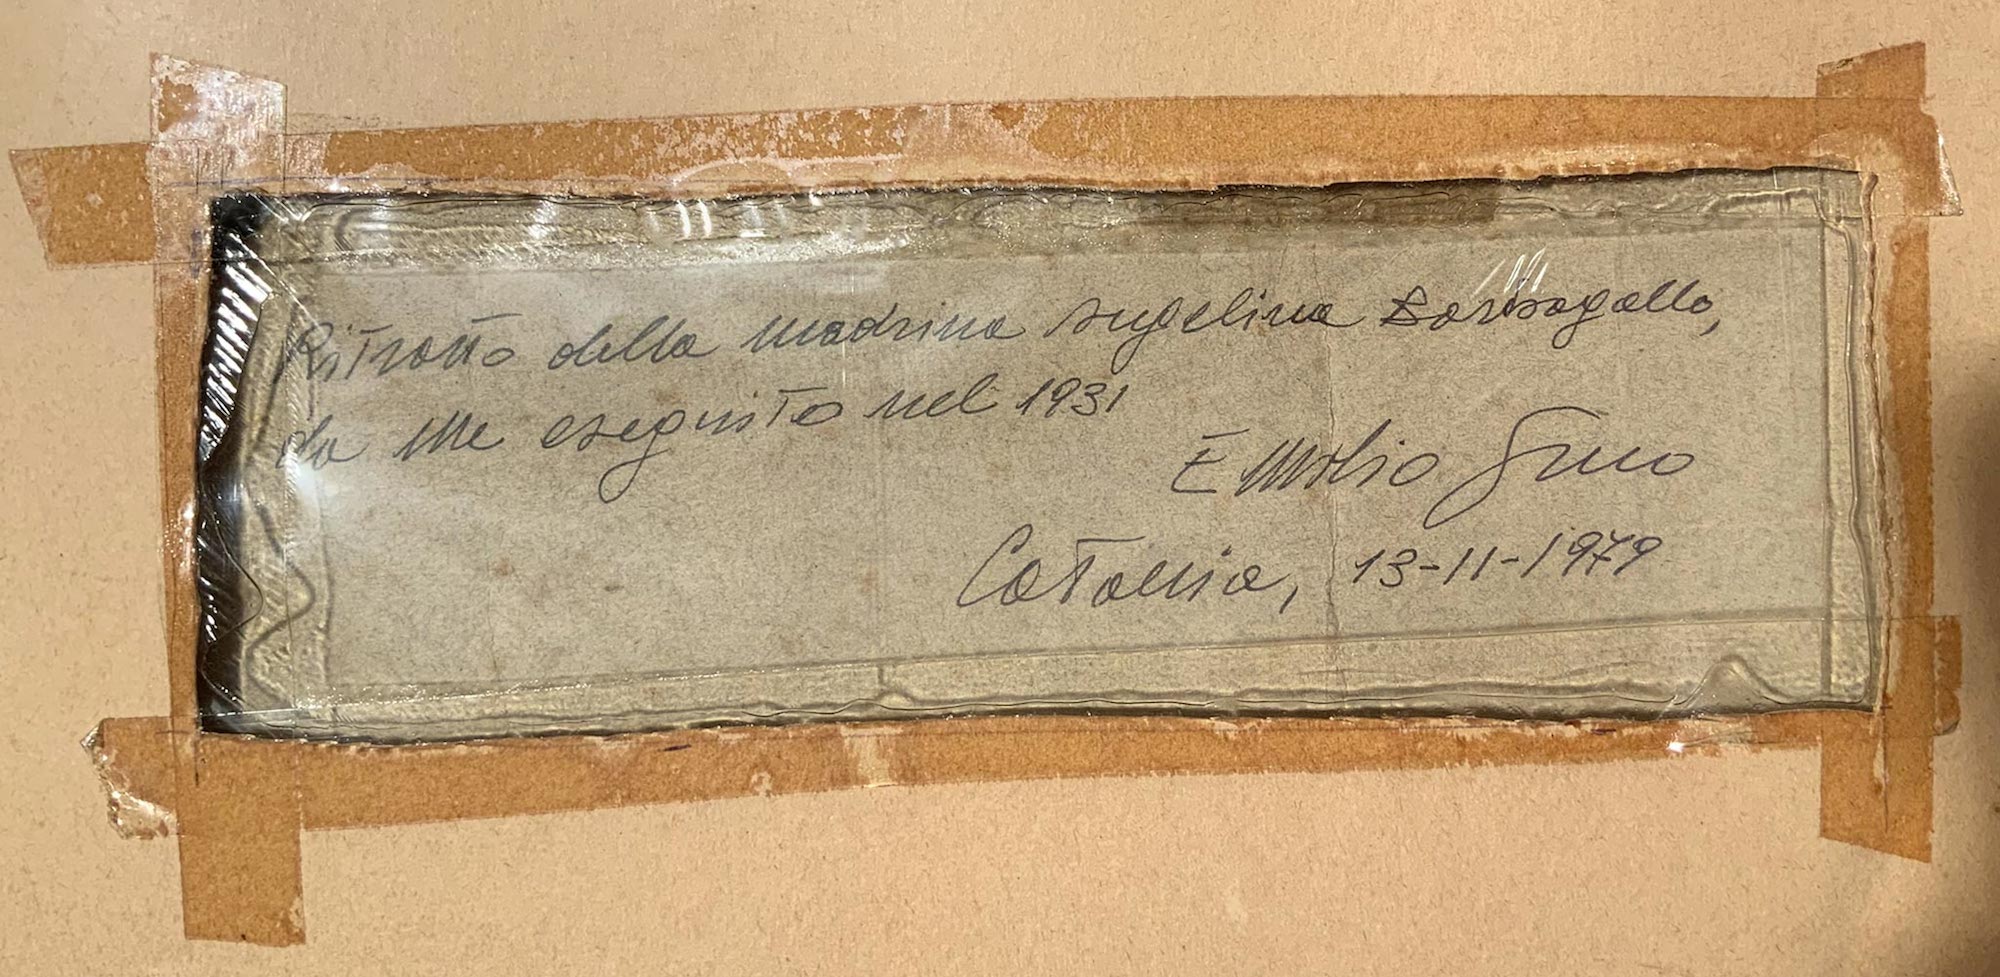 Ritratto della madrina Angelina Barbagallo,
da me eseguito nel 1931
Emilio Greco
Catania, 13-11-1979